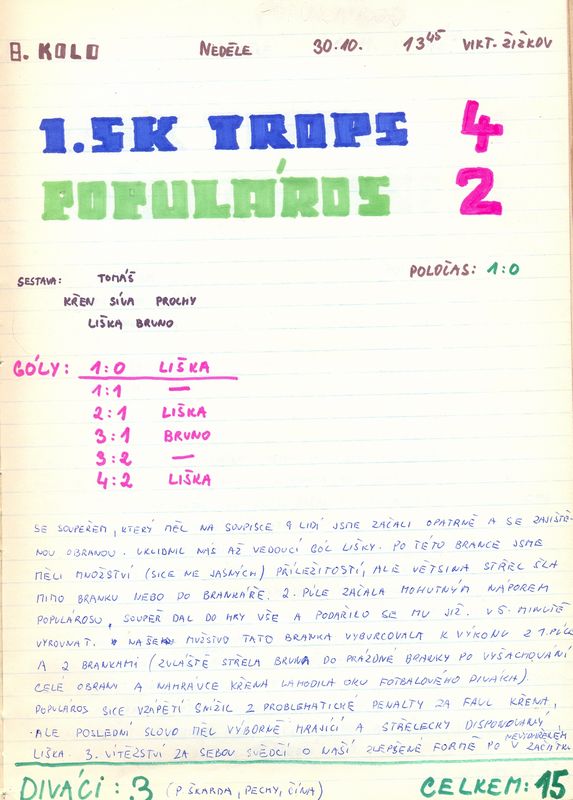 8. KOLO NEDĚLE 30.10. 13⁴⁵ VIKT. ŽIŽKOV
1.SK TROPS 4
POPULÁROS 2
POLOČAS: 1:0
SESTAVA: TOMÁŠ
KŘEN SÍVA PROCHY
LIŠKA BRUNO
GÓLY: 1:0 LIŠKA
1:1 —
2:1 LIŠKA
3:1 BRUNO
3:2 —
4:2 LIŠKA
SE SOUPEŘEM, KTERÝ MĚL NA SOUPISCE 9 LIDÍ JSME ZAČALI OPATRNĚ A SE ZAJIŠTĚ-
NOU OBRANOU. UKLIDNIL NÁS AŽ VEDOUCÍ GÓL LIŠKY. PO TÉTO BRANCE JSME
MĚLI MNOŽSTVÍ (SICE NE JASNÝCH) PŘÍLEŽITOSTÍ, ALE VĚTŠINA STŘEL ŠLA
MIMO BRANKU NEBO DO BRANKÁŘE. 2. PŮLE ZAČALA MOHUTNÝM NÁPOREM
POPULÁROSU, SOUPEŘ DAL DO HRY VŠE A PODAŘILO SE MU JIŽ V 5. MINUTĚ
VYROVNAT. NAŠE MUŽSTVO TATO BRANKA VYBURCOVALA K VÝKONU Z 1. PŮLE
A 2 BRANKAMI (ZVLÁŠTĚ STŘELA BRUNA DO PRÁZDNÉ BRANKY PO VYŠACHOVÁNÍ
CELÉ OBRANY A NAHRÁVCE KŘENA LAHODILA OKU FOTBALOVÉHO DIVÁKA).
POPULÁROS SICE VZÁPĚTÍ SNÍŽIL Z PROBLEMATICKÉ PENALTY ZA FAUL KŘENA,
ALE POSLEDNÍ SLOVO MĚL VÝBORNĚ HRAJÍCÍ A STŘELECKY DISPONOVANÝ
LIŠKA. 3. VÍTĚZSTVÍ ZA SEBOU SVĚDČÍ O NAŠÍ ZLEPŠENÉ FORMĚ PO NEVÝHERNÉM ZAČÁTKU
DIVÁCI: 3 (P. ŠKARDA, PECHY, ČÍŇA) CELKEM: 15